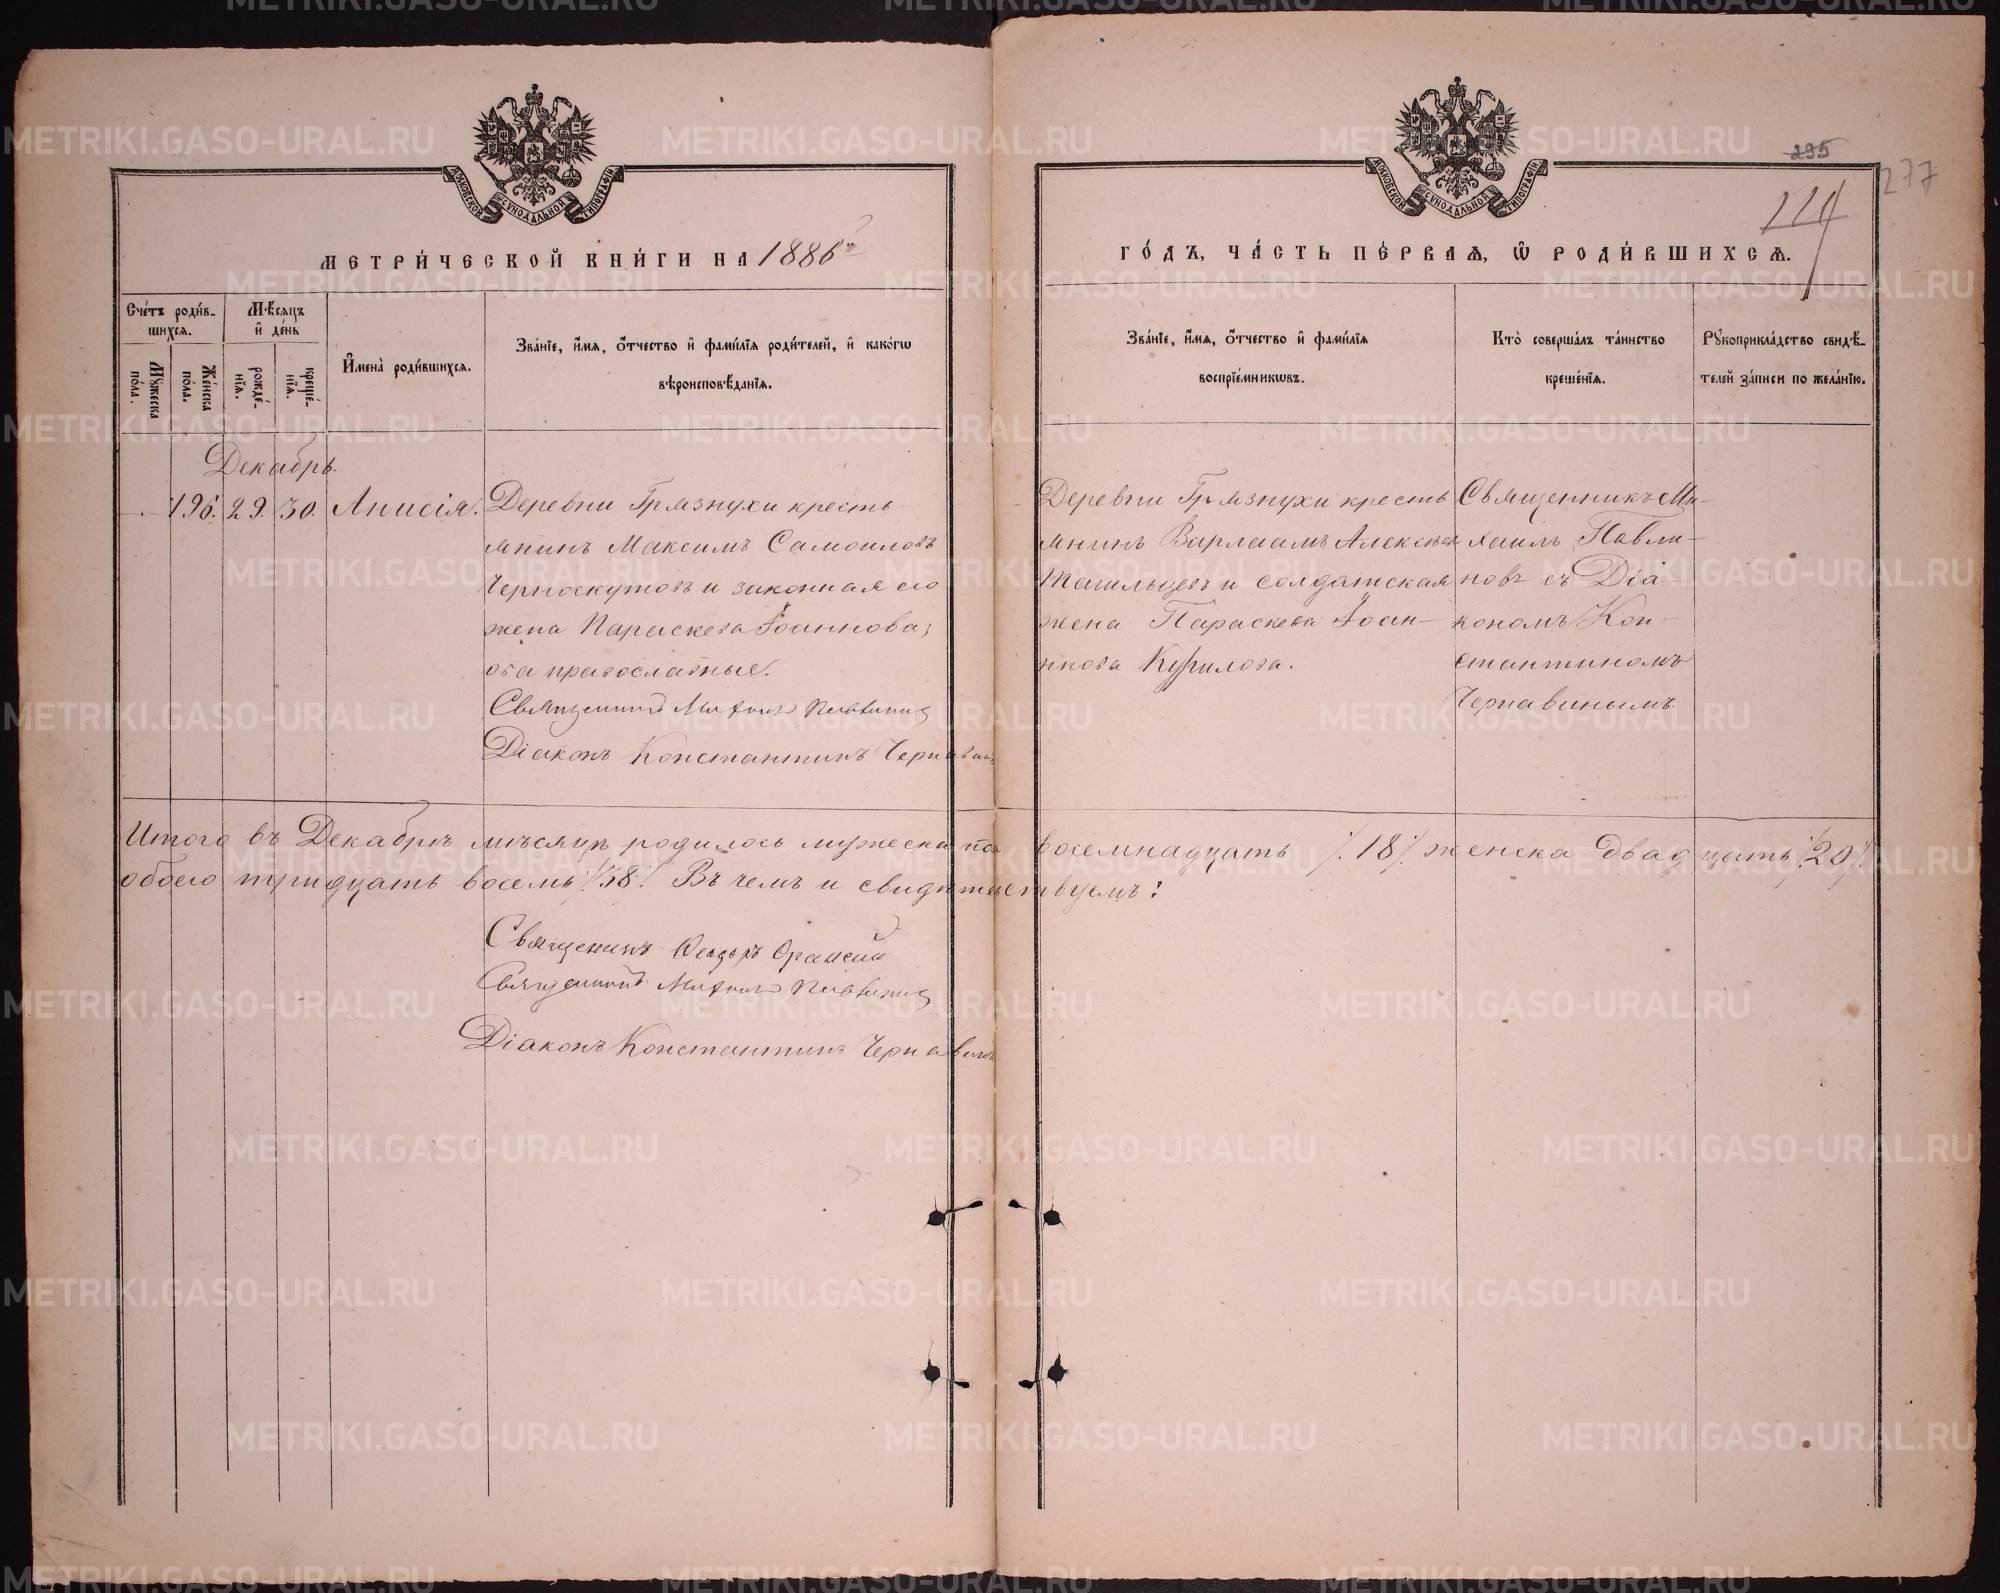 295
277
МОСКОВСКОЙ СѴНОДАЛЬНОЙ ТИПОГРАФІИ
МОСКОВСКОЙ СѴНОДАЛЬНОЙ ТИПОГРАФІИ
МЕТРИ́ЧЕСКОЙ КНИ́ГИ НА 1886
ГО́ДЪ, ЧА́СТЬ ПЕ́РВАѦ, Ѿ РОДИ́ВШИХСѦ.
Сче́тъ роди́в-
шихсѧ.
Мꙋжеска
по́ла.
Же́нска
по́ла.
Мѣ́сѧцъ
и҆ де́нь
рожде́-
нїѧ.
креще́-
нїѧ.
И҆мена̀ роди́вшихсѧ.
Зва́нїе, и҆́мѧ, ѻ҆́тчество и҆ фами́лїѧ роди́телей, и҆ како́гѡ
вѣроисповѣ́данїѧ.
Зва́нїе, и҆́мѧ, ѻ҆́тчество и҆ фами́лїѧ
воспрїе́мникѡвъ.
Кто̀ соверша́лъ та́инство
креще́нїѧ.
Рꙋкоприкла́дство свидѣ́-
телей за́писи по жела́нїю.
Декабрь.
196. 29. 30. Анисія.
Деревни Грязнухи кресть-
янинъ Максимъ Самоиловъ
Черноскутовъ и законная его
жена Параскева Іоаннова;
оба православные.
Священникъ Михаилъ Павлиновъ
Діаконъ Константинъ Чернавинъ
Деревни Грязнухи кресть-
янинъ Варлаамъ Алексѣевъ
Тагильцевъ и солдатская
жена Параскева Іоан-
нова Курилова.
Священникъ Ми-
хаилъ Павли-
новъ съ Діа-
кономъ Кон-
стантиномъ
Чернавинымъ.
Итого въ Декабрѣ мѣсяцѣ родилось мужеска пола восемнадцать /18/ женска двадцать /20/
обоего тридцать восемь /38/ Въ чемъ и свидѣтельствуемъ:
Священникъ
Священникъ Михаилъ Павлиновъ
Діаконъ Константинъ Чернавинъ
METRIKI.GASO-URAL.RU